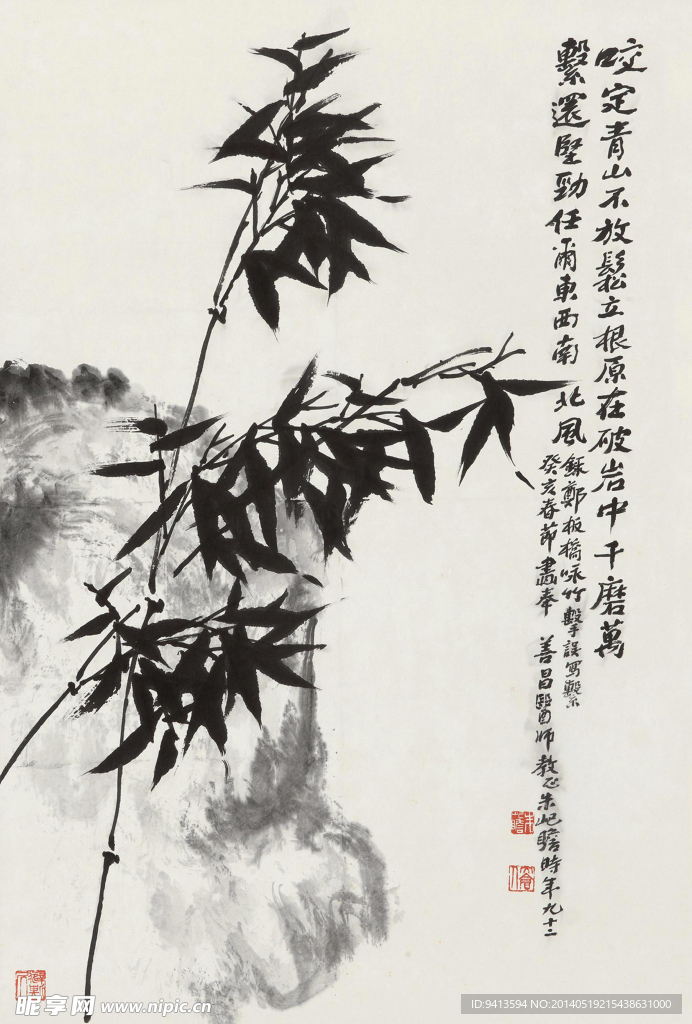 咬定青山不放鬆立根原在破岩中千磨萬
繫還堅勁任爾東西南北風
錄鄭板橋咏竹擊誤寫繫
癸亥春節畫奉
善昌醫師教正朱屺瞻時年九十二
昵享网 www.nipic.cn
ID:9413594 NO:20140519215438631000